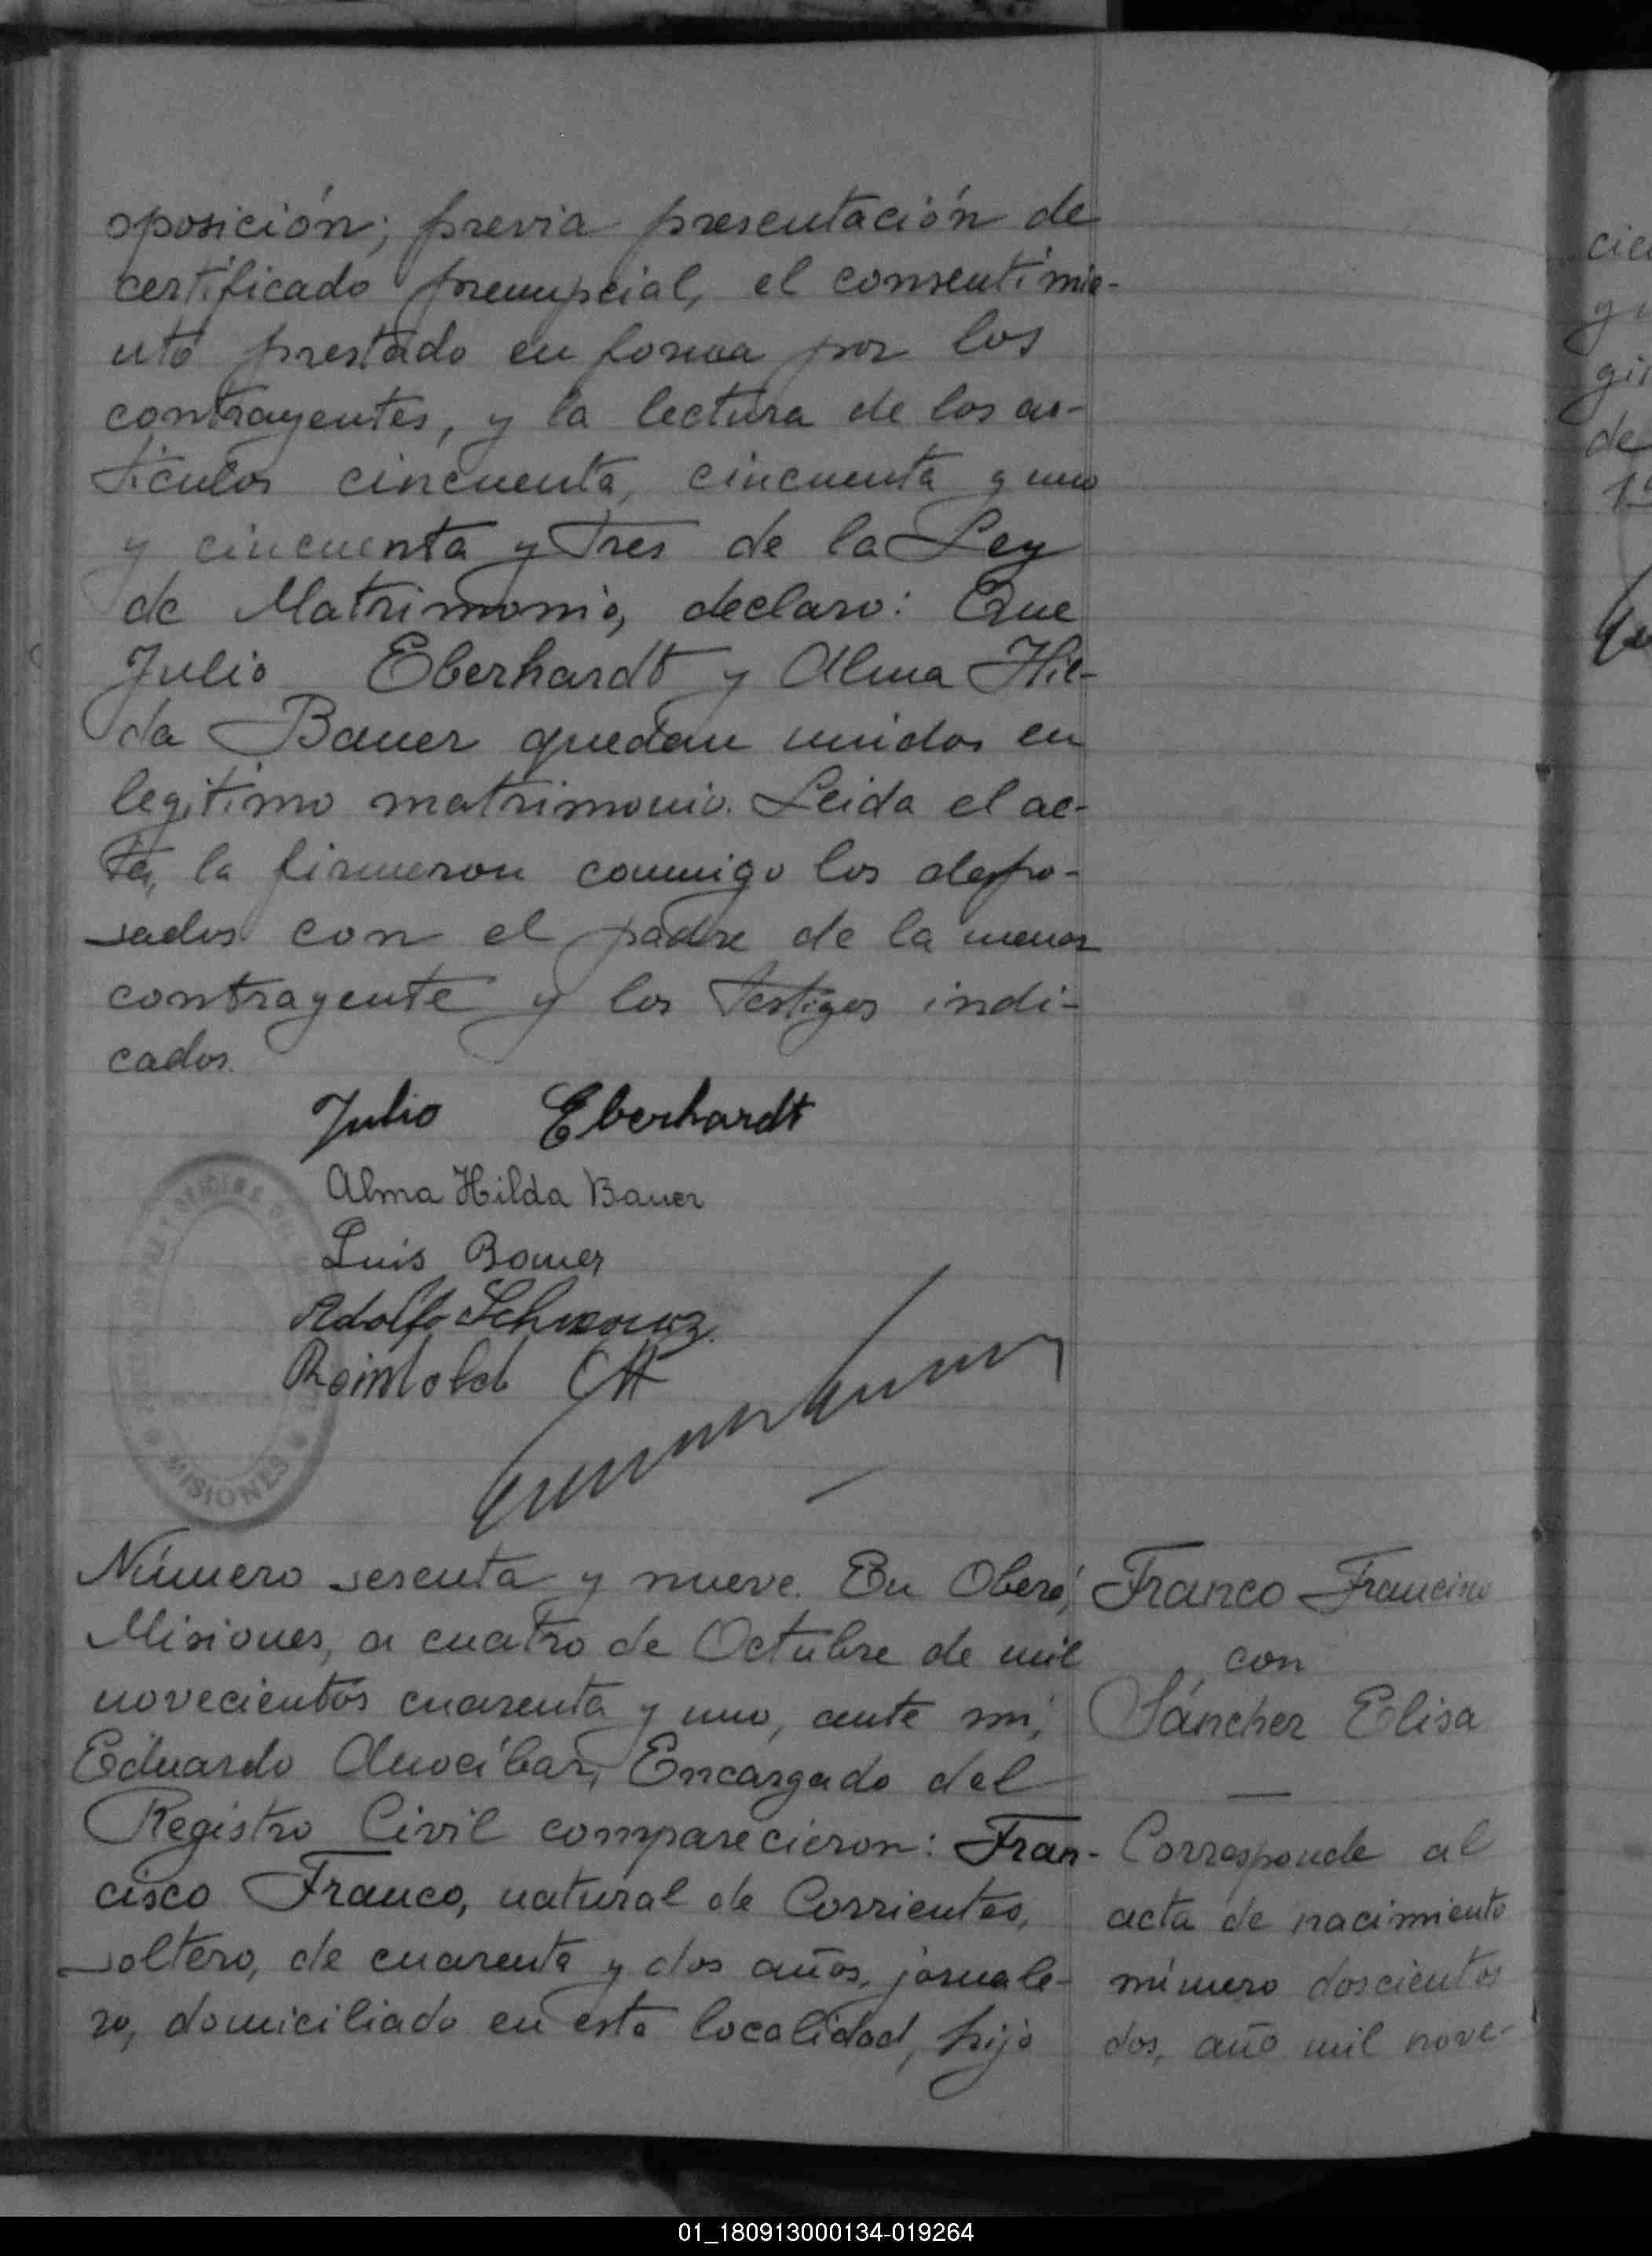 oposición; previa presentación de
certificado prenupcial, el consentimie-
nto prestado en forma por los
contrayentes, y la lectura de los ar-
tículos cincuenta, cincuenta y uno
y cincuenta y tres de la Ley
de Matrimonio, declaro: Que
Julio Eberhardt y Alma Hil-
da Bauer quedan unidos en
legítimo matrimonio. Leida el ac-
ta, la firmaron conmigo los despo-
sados con el padre de la menor
contrayente y los testigos indi-
cados.
Julio Eberhardt
Alma Hilda Bauer
Luis Bauer
Adolfo
Reinhold Ott
MISIONES
Número sesenta y nueve. En Oberá,
Misiones, a cuatro de Octubre de mil
novecientos cuarenta y uno, ante mí,
Eduardo Anocíbar, Encargado del
Registro Civil comparecieron: Fran-
cisco Franco, natural de Corrientes,
soltero, de cuarenta y dos años, jornale-
ro, domiciliado en esta localidad, hijo
Franco Francisco
con
Sánchez Elisa
Corresponde al
acta de nacimiento
número doscientos
dos, año mil nove-
cie
gi
de
01_180913000134-019264